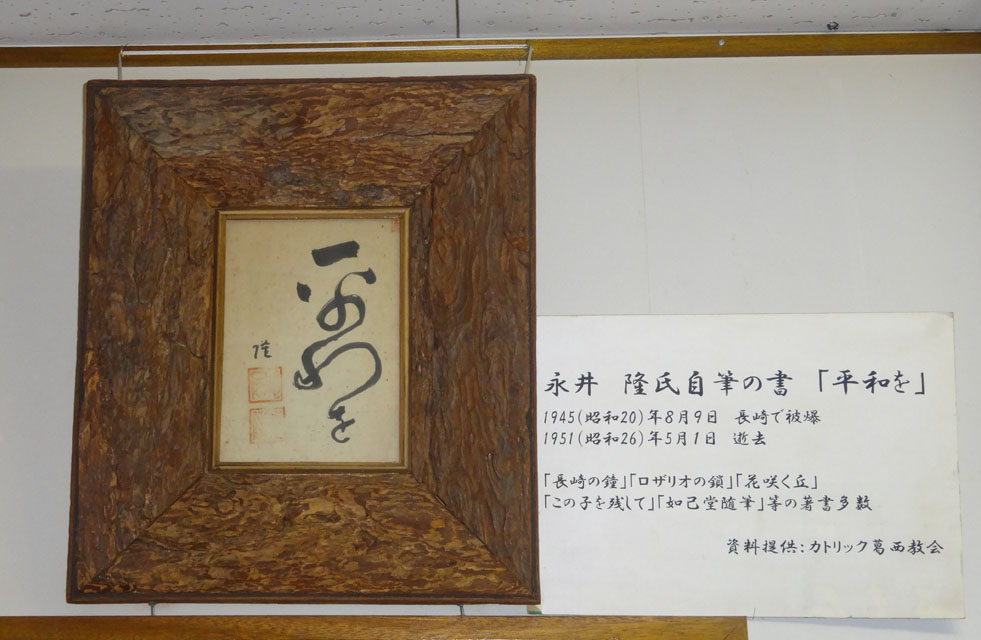 平和を
隆
永井　隆氏自筆の書　「平和を」
1945(昭和20)年8月9日　長崎で被爆
1951(昭和26)年5月1日　逝去
「長崎の鐘」「ロザリオの鎖」「花咲く丘」
「この子を残して」「如己堂随筆」等の著書多数
資料提供：カトリック葛西教会